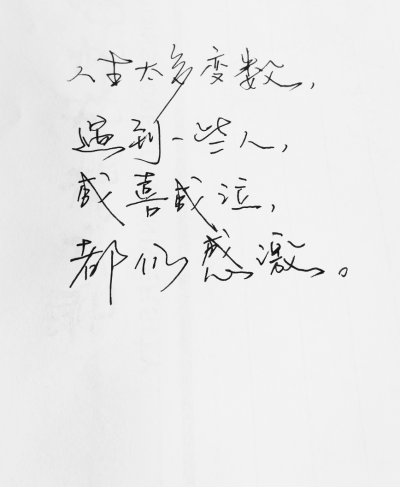 人生太多变数,
遇到一些人,
或喜或泣,
都似感激。